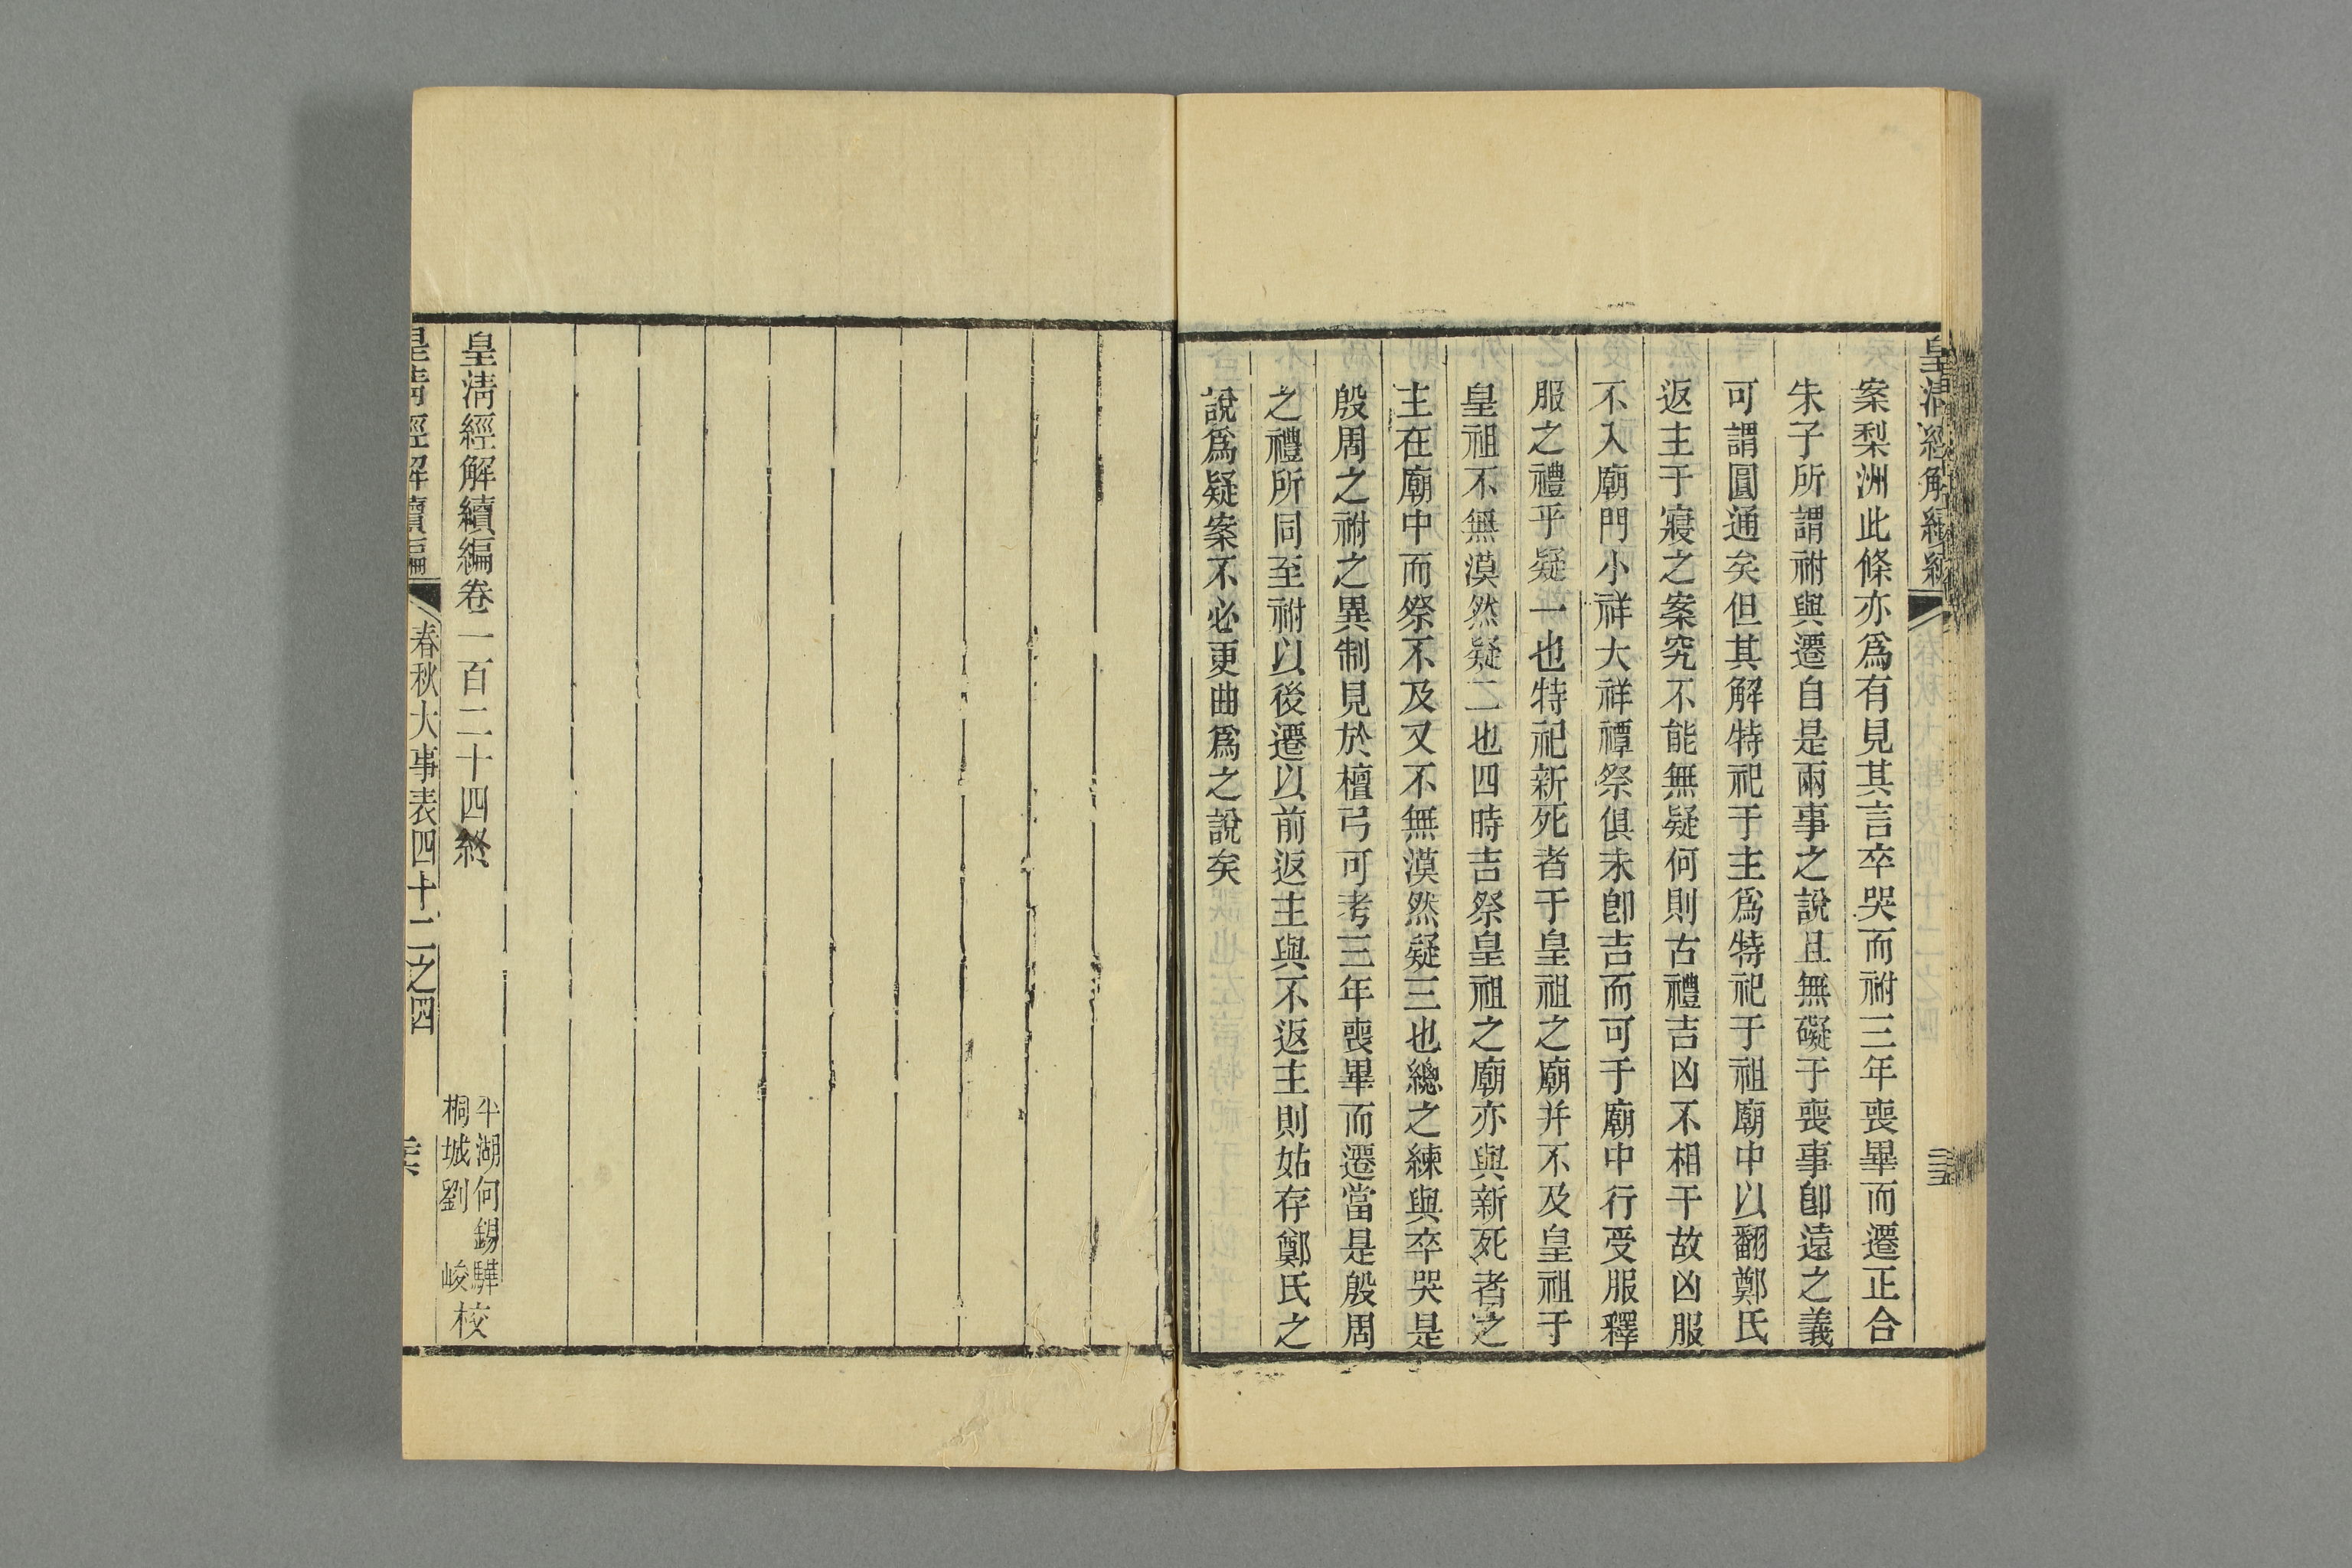 皇清經解續編
案梨洲此條亦爲有見其言卒哭而祔三年喪畢而遷正合
朱子所謂祔與遷自是兩事之說且無礙于喪事卽遠之義
可謂圓通矣但其解特祀于主爲特祀于祖廟中以翻鄭氏
返主于寢之案究不能無疑何則古禮吉凶不相干故凶服
不入廟門小祥大祥禫祭俱未卽吉而可于廟中行受服釋
服之禮乎疑一也特祀新死者于皇祖之廟并不及皇祖于
皇祖不無漠然疑二也四時吉祭皇祖之廟亦與新死者之
主在廟中而祭不及又不無漠然疑三也總之練與卒哭是
殷周之祔之異制見於檀弓可考三年喪畢而遷當是殷周
之禮所同至祔以後遷以前返主與不返主則姑存鄭氏之
說爲疑案不必更曲爲之說矣
皇清經解續編卷一百二十四終
平湖何錫驊
桐城劉 峻
校
皇清經解續編 春秋大事表四十二之四